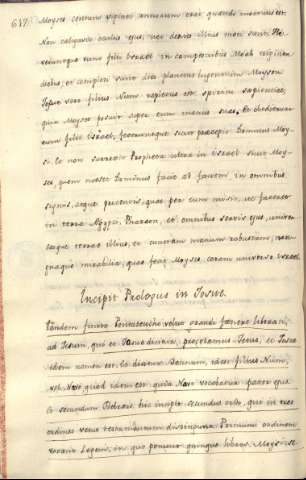 617
Moyses centum viginti annorum erat quando mortuus est
Non caligavit oculus ejus, nec dentes illius moti sunt. Fle
veruntque eum filii Israel in campestribus Moab triginta
diebus, et completi sunt dies planctus lugentium Moysen
Josue vero filius Nun repletus est spiritu sapientiae,
quia Moyses posuit super eum manus suas. Et obedierunt
eum filii Israel, feceruntque sicut praecepit Dominus Moy-
si. Et non surrexit Propheta ultra in Israel sicut Moy-
ses, quem nosset Dominus facie ad faciem in omnibus
signis, atque portentis, quae per eum misit, ut faceret
in terra Aegypti Pharaoni, et omnibus servis ejus, univer-
saeque terrae illius, et cunctam manum robustam, mag-
naque mirabilia, quae fecit Moyses coram universo Israel
Incipit Prologus in Josue.
Tandem finito Pentateucho velut grandi foenore liberati,
ad Jesum, qui et
idem nomen est. Id dicitur filius Nun,
quod idem est quia Nave vocabatur pater ejus
secundum Hebraeos, hic incipit secundus ordo, qui in tres
ordines vetus testamentum distinguunt. Primum ordinem
vocant Legem, in quo ponunt quinque libros Moysi. Se